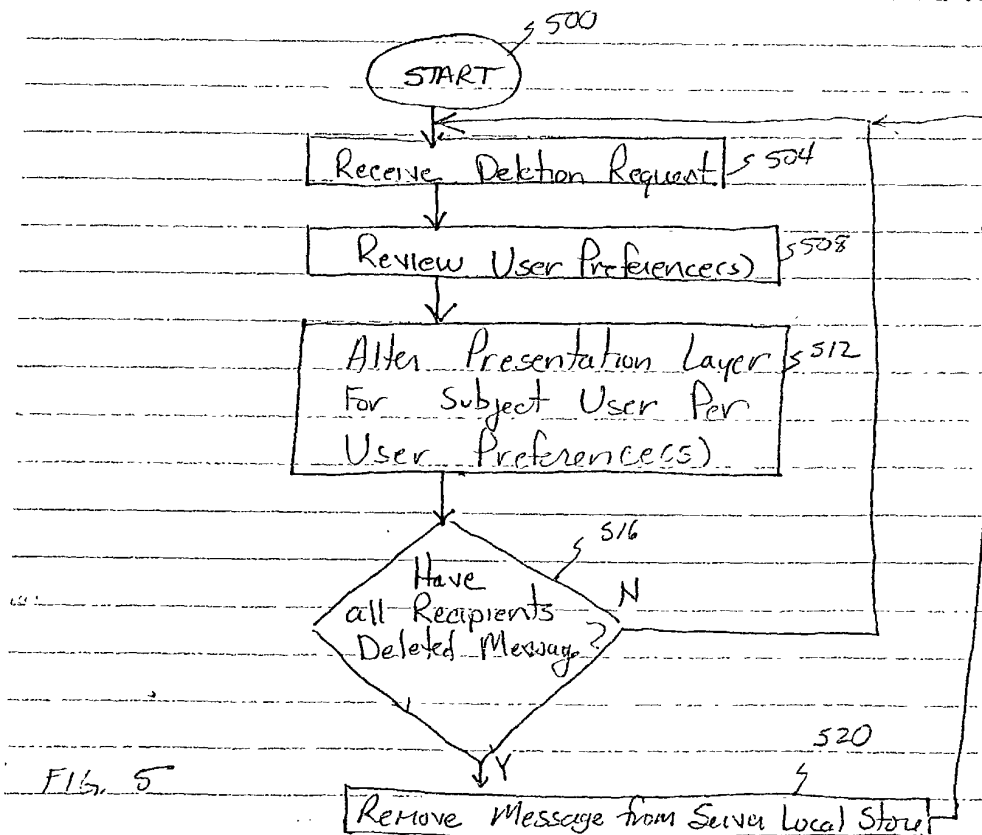 500
START
Receive Deletion Request
504
Review User Preference(s)
508
Alter Presentation Layer
512
For Subject User Per
User Preference(s)
516
Have
all Recipients
Deleted Message?
N
Y
520
FIG. 5
Remove Message from Server Local Store